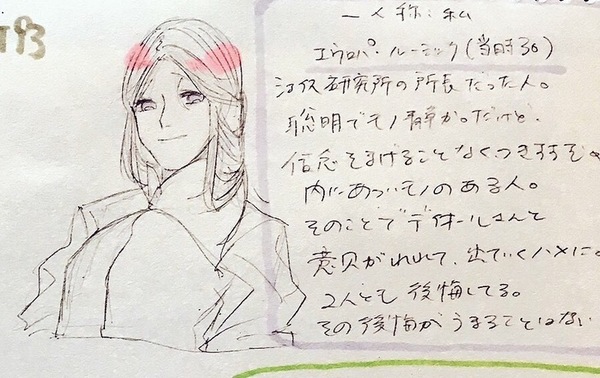 T93
一人称:私
エウロパ・ルーミック(当時30)
研究所の所長だった人。
聡明でモノ静か。だけど、
信念をまげることなくつき
内にあついモノのある人。
そのことでディオールさんと
意見がわれて、出ていくハメに。
2人とも後悔してる。
その後悔がうまることはない